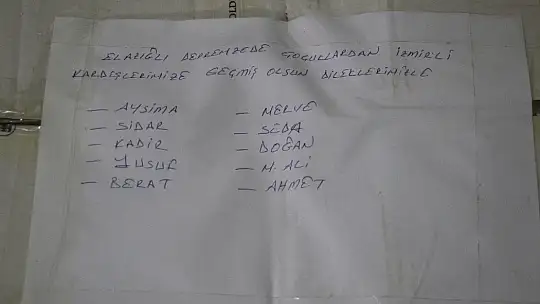 ELAZIĞLI DEPREMZEDE ÇOCUKLARDAN İZMİRLİ
KARDEŞLERİMİZE GEÇMİŞ OLSUN DİLEKLERİMİZLE
— AYSİMA
— SİDAR
— KADİR
— YUSUF
— BERAT
— MERVE
— SEDA
— DOĞAN
— M. ALİ
— AHMET